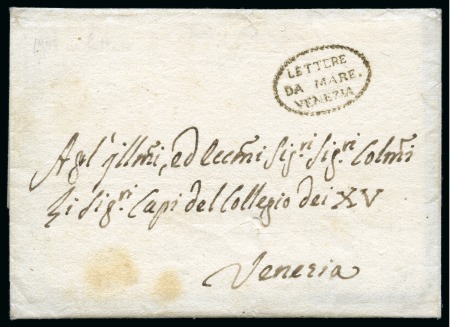 LETTERE
DA MARE.
VENEZIA
Agl' Jllmi, ed Eccmi Sigri Sigri Colmi
Li Sigri Capi del Collegio dei XV
Venezia